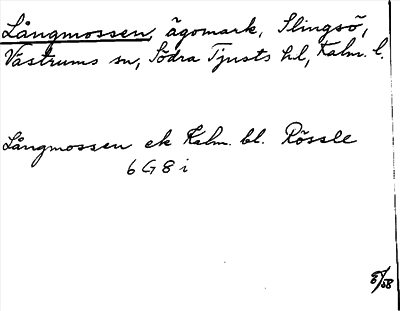 Långmossen, ägomark, Slingsö,
Västrums sn, Södra Tjusts hd, Kalm. l.
Långmossen ek Kalm. bl. Rössle
6 G 8 i
/58